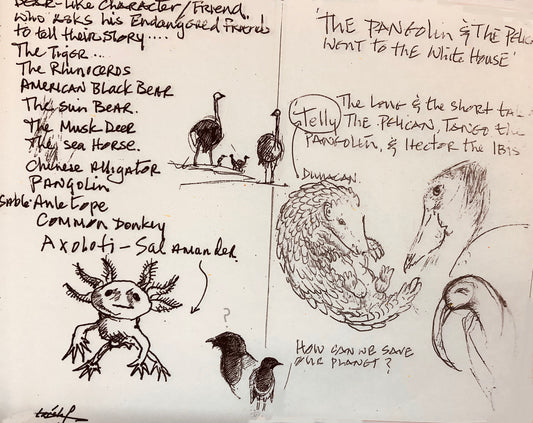 Bear-like Character/Friend
who asks his Endangered Friends
to tell their story....
The Tiger ...
The Rhinoceros
American Black Bear
The Sun Bear.
The Musk Deer
The Sea Horse.
Chinese Alligator
Pangolin
Sable Antelope
Common Donkey
Axolotl - Salamander
?
'The Pangolin & The Pelic
went to the White House'
Telly
The Long & the short tal
The Pelican, Tango the
Pangolin, & Hector the Ibis
Duncan.
How can we save
our planet?